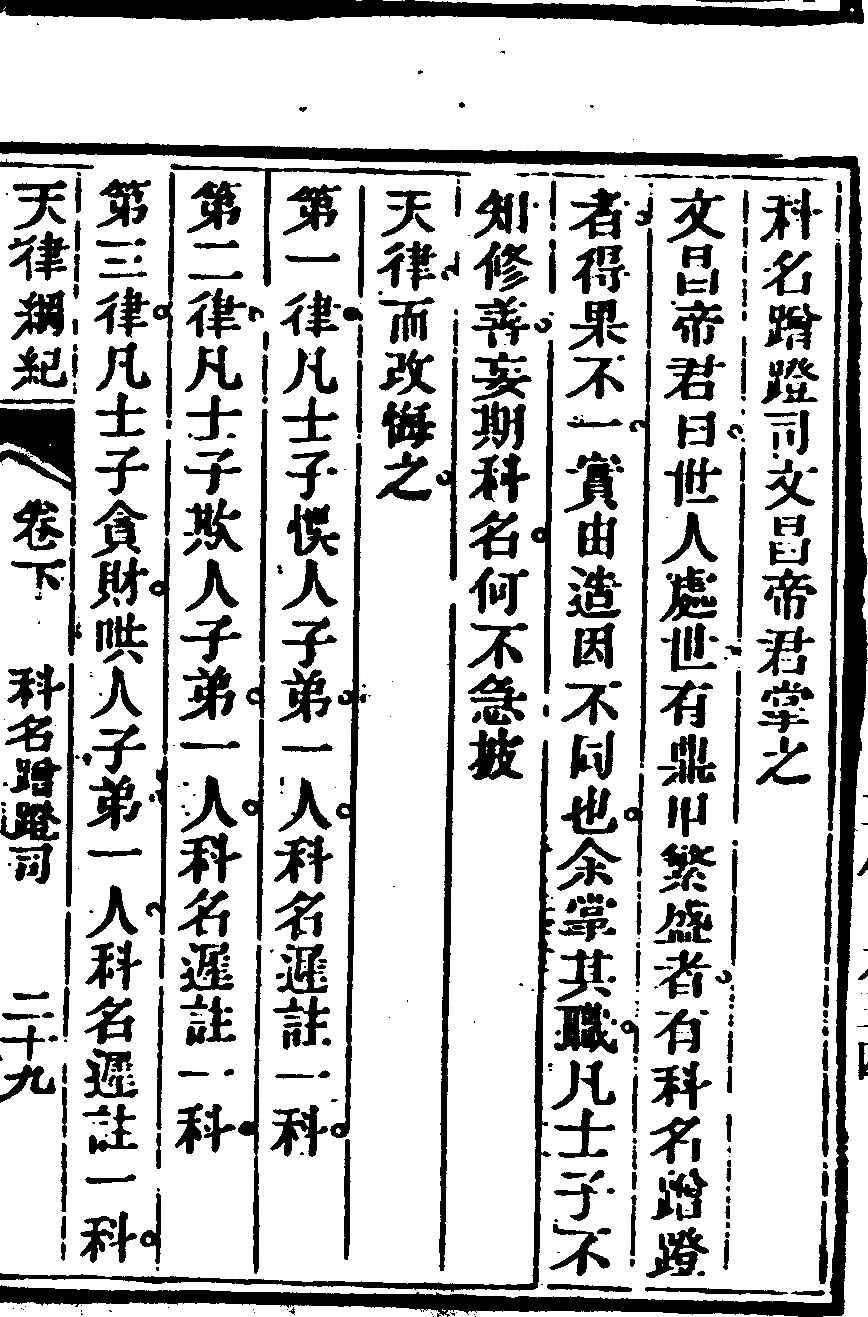 科名蹭蹬司文昌帝君掌之
文昌帝君曰世人處世有鼎甲繁盛者有科名蹭蹬
者得果不一實由造因不同也余掌其職凡士子不
知修善妄期科名何不急披
天律而改悔之
第一律凡士子悞人子弟一人科名遲註一科
第二律凡士子欺人子弟一人科名遲註一科
第三律凡士子貪財哄人子弟一人科名遲註一科
天律綱紀 卷下 科名蹭蹬司 二十九